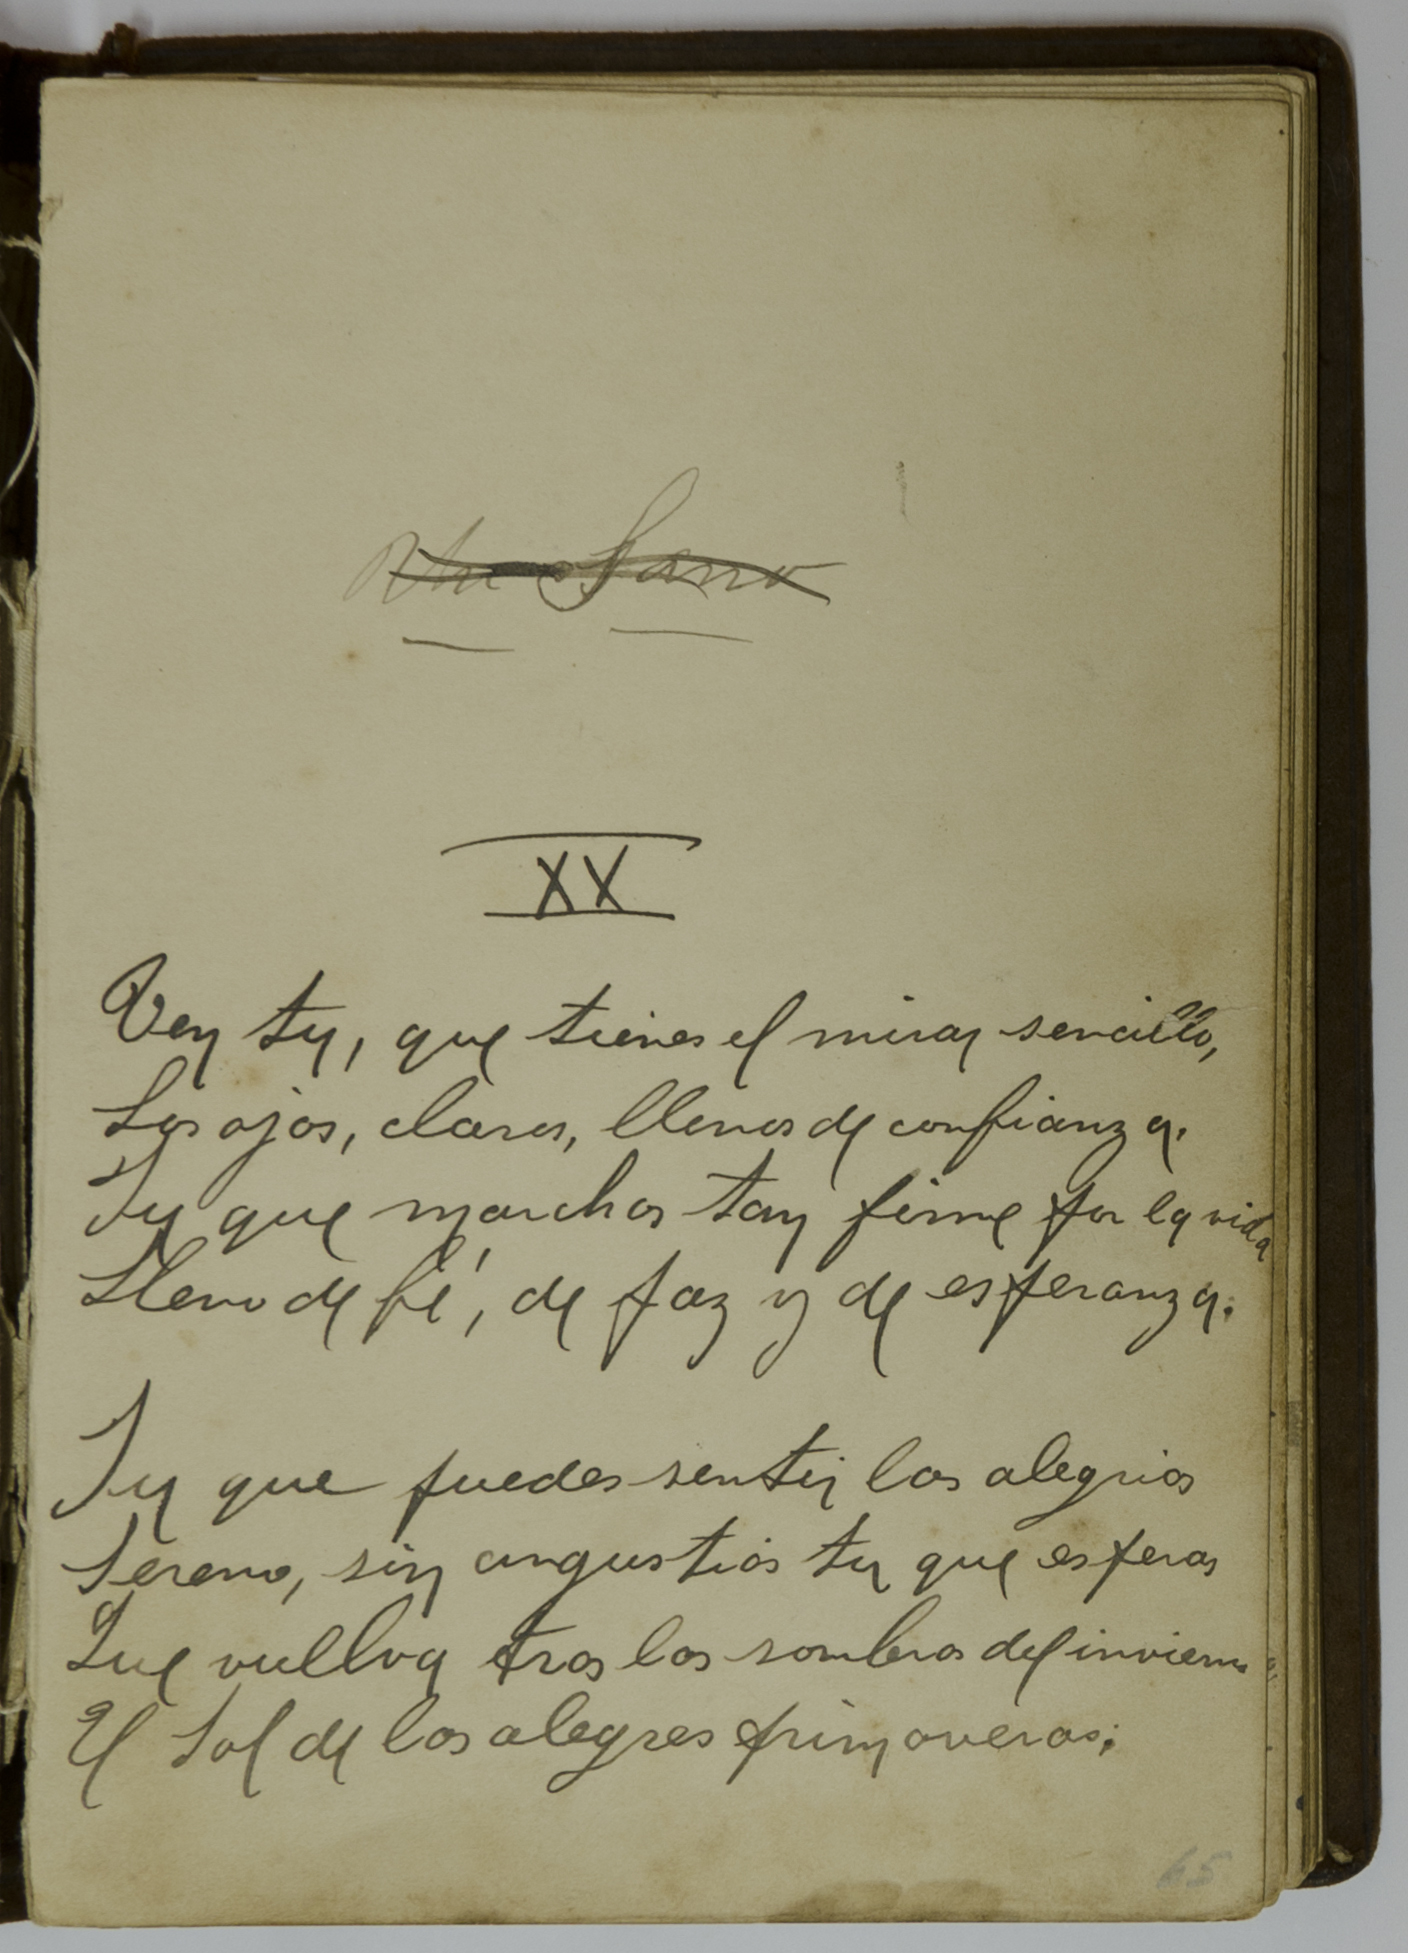 XX
Ven tu, que tienes el mirar sencillo,
Los ojos, claros, llenos de confianza.
Tu que marchas tan firme por la vida
Lleno de fé, de paz y de esperanza.
Tu que puedes sentir las alegrias
Sereno, sin angustias tu que esperas
Que vuelva tras las sombras del invierno
El Sol de las alegres primaveras.
65